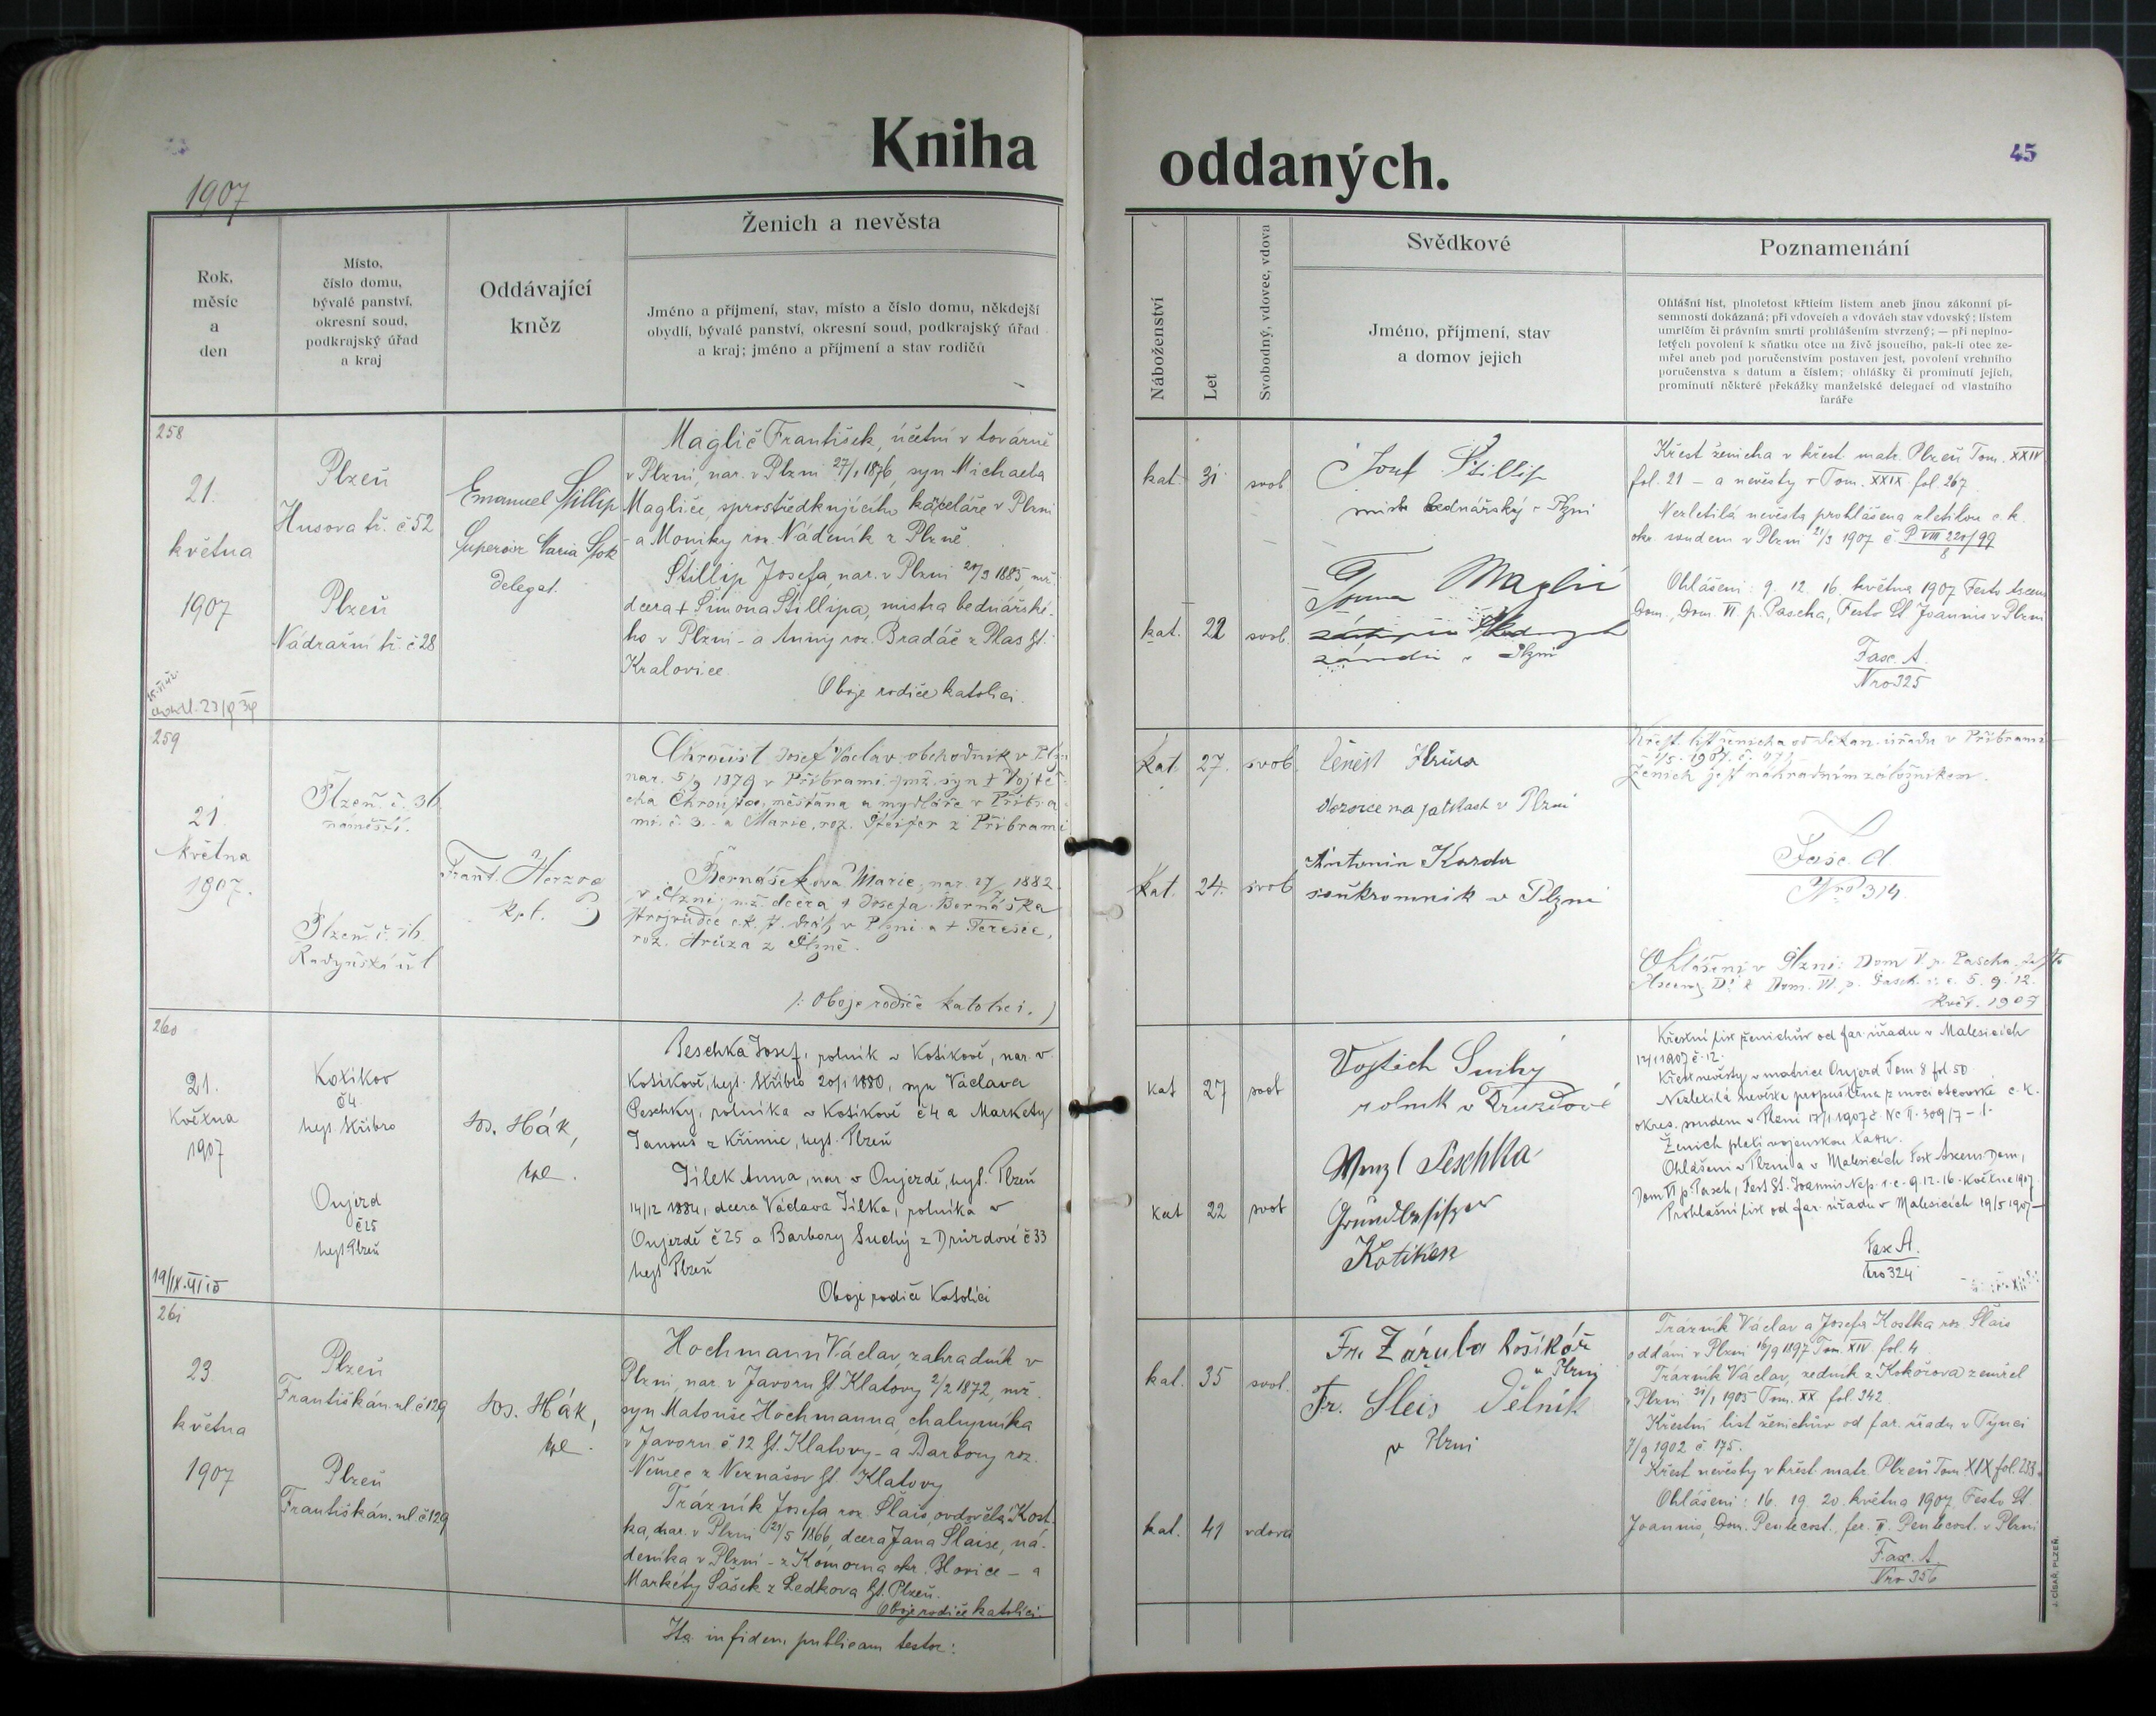 Kniha
oddaných.
45
1907
Rok,
měsíc
a
den
Místo,
číslo domu,
bývalé panství,
okresní soud,
podkrajský úřad
a kraj
Oddávající
kněz
Ženich a nevěsta
Jméno a příjmení, stav, místo a číslo domu, někdejší
obydlí, bývalé panství, okresní soud, podkrajský úřad
a kraj; jméno a příjmení a stav rodičů
Náboženství
Let
Svobodný, vdovec, vdova
Svědkové
Jméno, příjmení, stav
a domov jejich
Poznamenání
Ohlášní list, plnoletost křticím listem aneb jinou zákonní pí-
semností dokázaná; při vdovcích a vdovách stav vdovský; listem
umrlčím či právním smrti prohlášením stvrzený; — při neplno-
letých povolení k sňatku otce na živě jsoucího, pak-li otec ze-
mřel aneb pod poručenstvím postaven jest, povolení vrchního
poručenstva s datum a číslem; ohlášky či prominutí jejich,
prominutí některé překážky manželské delegací od vlastního
faráře
258
21.
května
1907
Plzeň
Husova tř. č 52
Plzeň
Nádražní tř. č 28
Emanuel Stillip
Superior Maria Stok
delegat.
Maglič František, účetní v továrně
v Plzni, nar. v Plzni 27/1 1876, syn Michaela
Magliče, sprostředkujícího kanceláře v Plzni
- a Moniky roz. Nádeník z Plzně.
Štillip Josefa, nar. v Plzni 20/3 1885, mž.
dcera + Šimona Štillipa, mistra bednářské-
ho v Plzni - a Anny roz. Bradáč z Plas ht.
Kralovice.
Oboje rodiče katolíci.
kat. 31 svob
kat. 22 svob.
Josef Stillip
mistr bednářský v Plzni
Maglič
v Plzni
Křest ženicha v křest. matr. Plzeň Tom. XXIV
fol. 21 - a nevěsty v Tom. XXIX fol. 267
Nezletilá nevěsta prohlášena zletilou c. k.
okr. soudem v Plzni 21/3 1907 č. P VIII 220/99
8
Ohlášeni: 9. 12. 16. května 1907 Festo Ascens
Dom., Dom. VI p. Pascha, Festo St. Joannis v Plzni
Fasc. A.
Nro 325
259
21.
května
1907.
Plzeň. č. 36
náměstí.
Plzeň. č. 16.
Radyňská ul
Frant. Herzog
kpl.
Chroust Josef Václav, obchodník v Plzni
nar. 5/9 1879 v Příbrami, mž. syn + Vojtě-
cha Chrousta, měšťana a mydláře v Příbra-
mi. č. 3. - a Marie, roz. Pfeifer z Příbrami
Bernášková Marie, nar. 27/7 1882
v Plzni; mž. dcera + Josefa Bernáška
strojvůdce c. k. st. dráh v Plzni a + Terezie,
roz. Hrůza z Plzně.
/: Oboje rodiče katolíci. /
kat. 27. svob.
kat. 24. svob
Čeněk Hrůza
dozorce na jatkách v Plzni
Antonín Kazda
soukromník v Plzni
Křest. list ženicha od děkan. úřadu v Příbrami
Ženich jest náhradním záložníkem.
Fasc. A
Nro 314.
Ohlášeni v Plzni: Dom V. p. Pascha, Festo
Ascens D. & Dom. VI. p. Pasch. i. e. 5. 9. 12.
Květ. 1907
260
21.
Května
1907
19/IX.
Kotikov
č 4.
hejt. Stříbro
Oujezd
č 25
hejt Plzeň
Jos. Hák,
kpl.
Peschka Josef, rolník v Kotikově, nar. v
Kotikově, hejt. Stříbro 20/1 1880, syn Václava
Peschky, rolníka v Kotikově č 4 a Markety
Janouš z Křimic, hejt. Plzeň
Jilek Anna, nar. v Oujezdě, hejt. Plzeň
14/12 1884, dcera Václava Jilka, rolníka v
Oujezdě č 25 a Barbory Suchý z Druzdové č 33
hejt Plzeň
Oboje rodiče Katolíci
kat 27 svob
kat 22 svob
Vojtěch Suchý
rolník v Druzdové
Wenzl Peschka
Grundbesitzer
Kotiken
Křestní list ženichův od far. úřadu v Malesicích
12/1 1907 č. 12.
Křest nevěsty v matrice Oujezd Tom 8 fol 50
Nezletilá nevěsta propuštěna z moci otcovské c. k.
okres. soudem v Plzni 17/1 1907 č. Nc II. 309/7 - 1.
Ženich platí vojenskou taxu.
Ohlášeni v Plzni a v Malesicích Fest Ascens Dom,
Dom VI p. Pasch, Fest St. Joannis Nep. i. e. 9. 12. 16. Května 1907
Prohlašní list od far. úřadu v Malesicích 19/5 1907 -
Fasc A.
Nro 324
261
23.
května
1907
Plzeň
Františkán. ul. č 129
Plzeň
Františkán. ul. č 129
Jos. Hák,
kpl.
Hochmann Václav, zahradník v
Plzni, nar. v Javoru ht. Klatovy 2/2 1872, mž.
syn Matouše Hochmanna, chalupníka
v Javoru č 12 ht. Klatovy - a Barbory roz.
Němec z Neznašov ht. Klatovy
Trázník Josefa roz. Šlais, ovdovělá Kost-
ka, nar. v Plzni 29/5 1866, dcera Jana Šlaise, ná-
deníka v Plzni - z Komorna okr. Blovice - a
Markéty Sášek z Ledkova ht. Plzeň.
Oboje rodiče katolíci.
kat. 35 svob.
kat. 41 vdova
Fr. Záruba košíkář
v Plzni
Fr. Šleis Dělník
v Plzni
Trázník Václav a Josefa Kostka roz. Šlais
oddáni v Plzni 16/9 1897 Tom. XIV fol. 4
Trázník Václav, zedník z Kokořova zemřel
v Plzni 31/1 1905 Tom. XX fol. 342.
Křestní list ženichův od far. úřadu v Týnci
7/9 1902 č. 175.
Křest nevěsty v křest. matr. Plzeň Tom. XIX fol. 233.
Ohlášeni: 16. 19. 20. května 1907, Festo St.
Joannis, Dom. Pentecost., fer. II. Pentecost. v Plzni
Fasc. A.
Nro 356
Ita in fidem publicam testor:
J. CÍSAŘ, PLZEŇ.